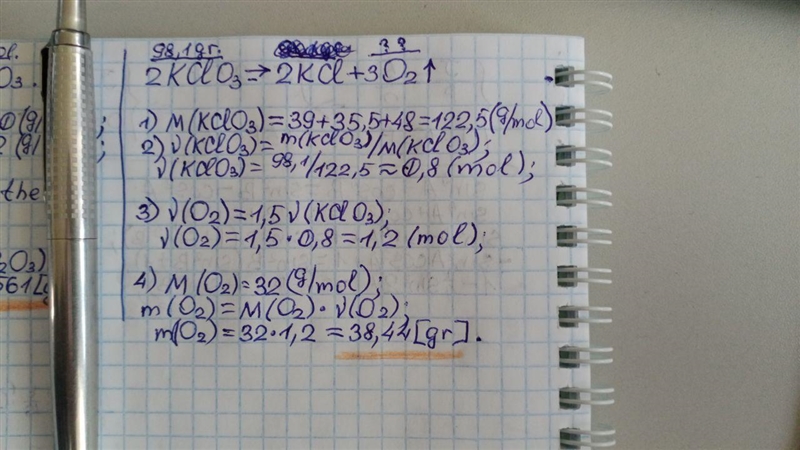 98,1gr. ??
2KClO₃ → 2KCl + 3O₂↑
1) M(KClO₃) = 39 + 35,5 + 48 = 122,5 (g/mol)
2) ν(KClO₃) = m(KClO₃)/M(KClO₃);
ν(KClO₃) = 98,1/122,5 ≈ 0,8 (mol);
3) ν(O₂) = 1,5 ν(KClO₃);
ν(O₂) = 1,5 · 0,8 = 1,2 (mol);
4) M(O₂) = 32 (g/mol);
m(O₂) = M(O₂) · ν(O₂);
m(O₂) = 32 · 1,2 = 38,44 [gr].
the
561